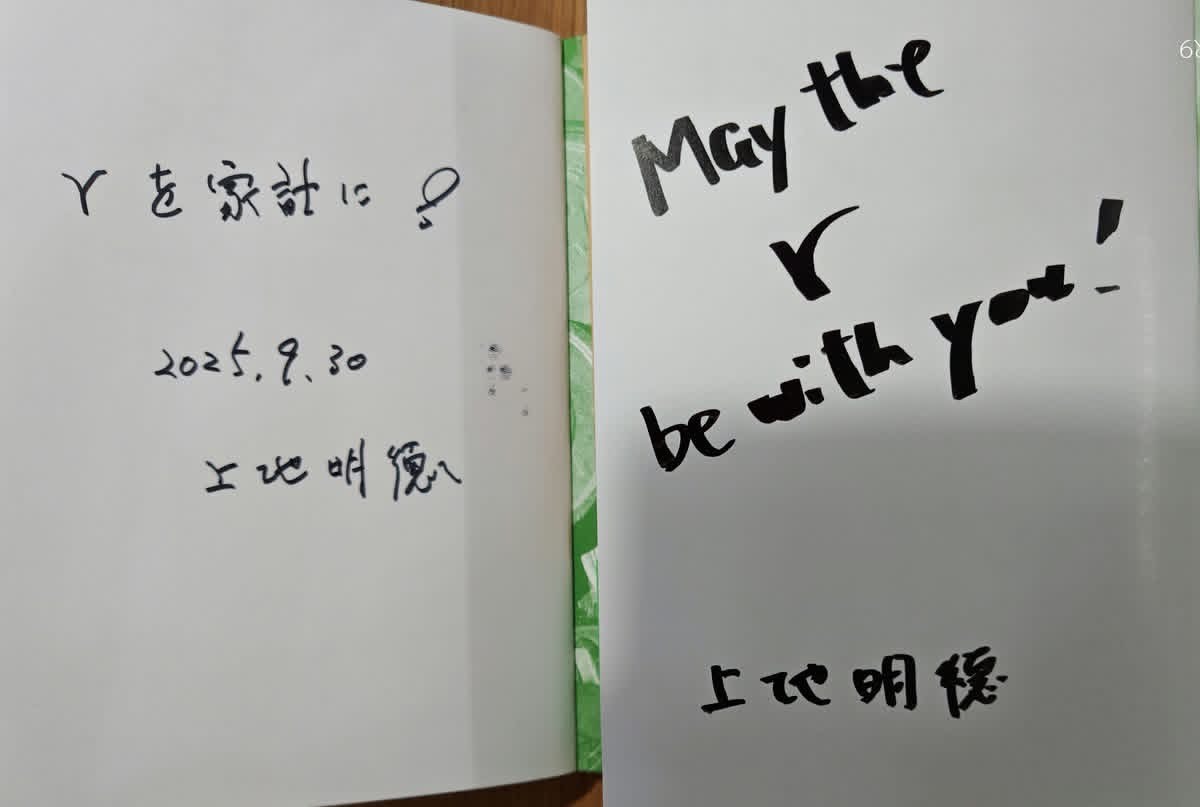 rを家計に!
2025.9.30
上地明徳
May the
r
be with you!
上地明徳